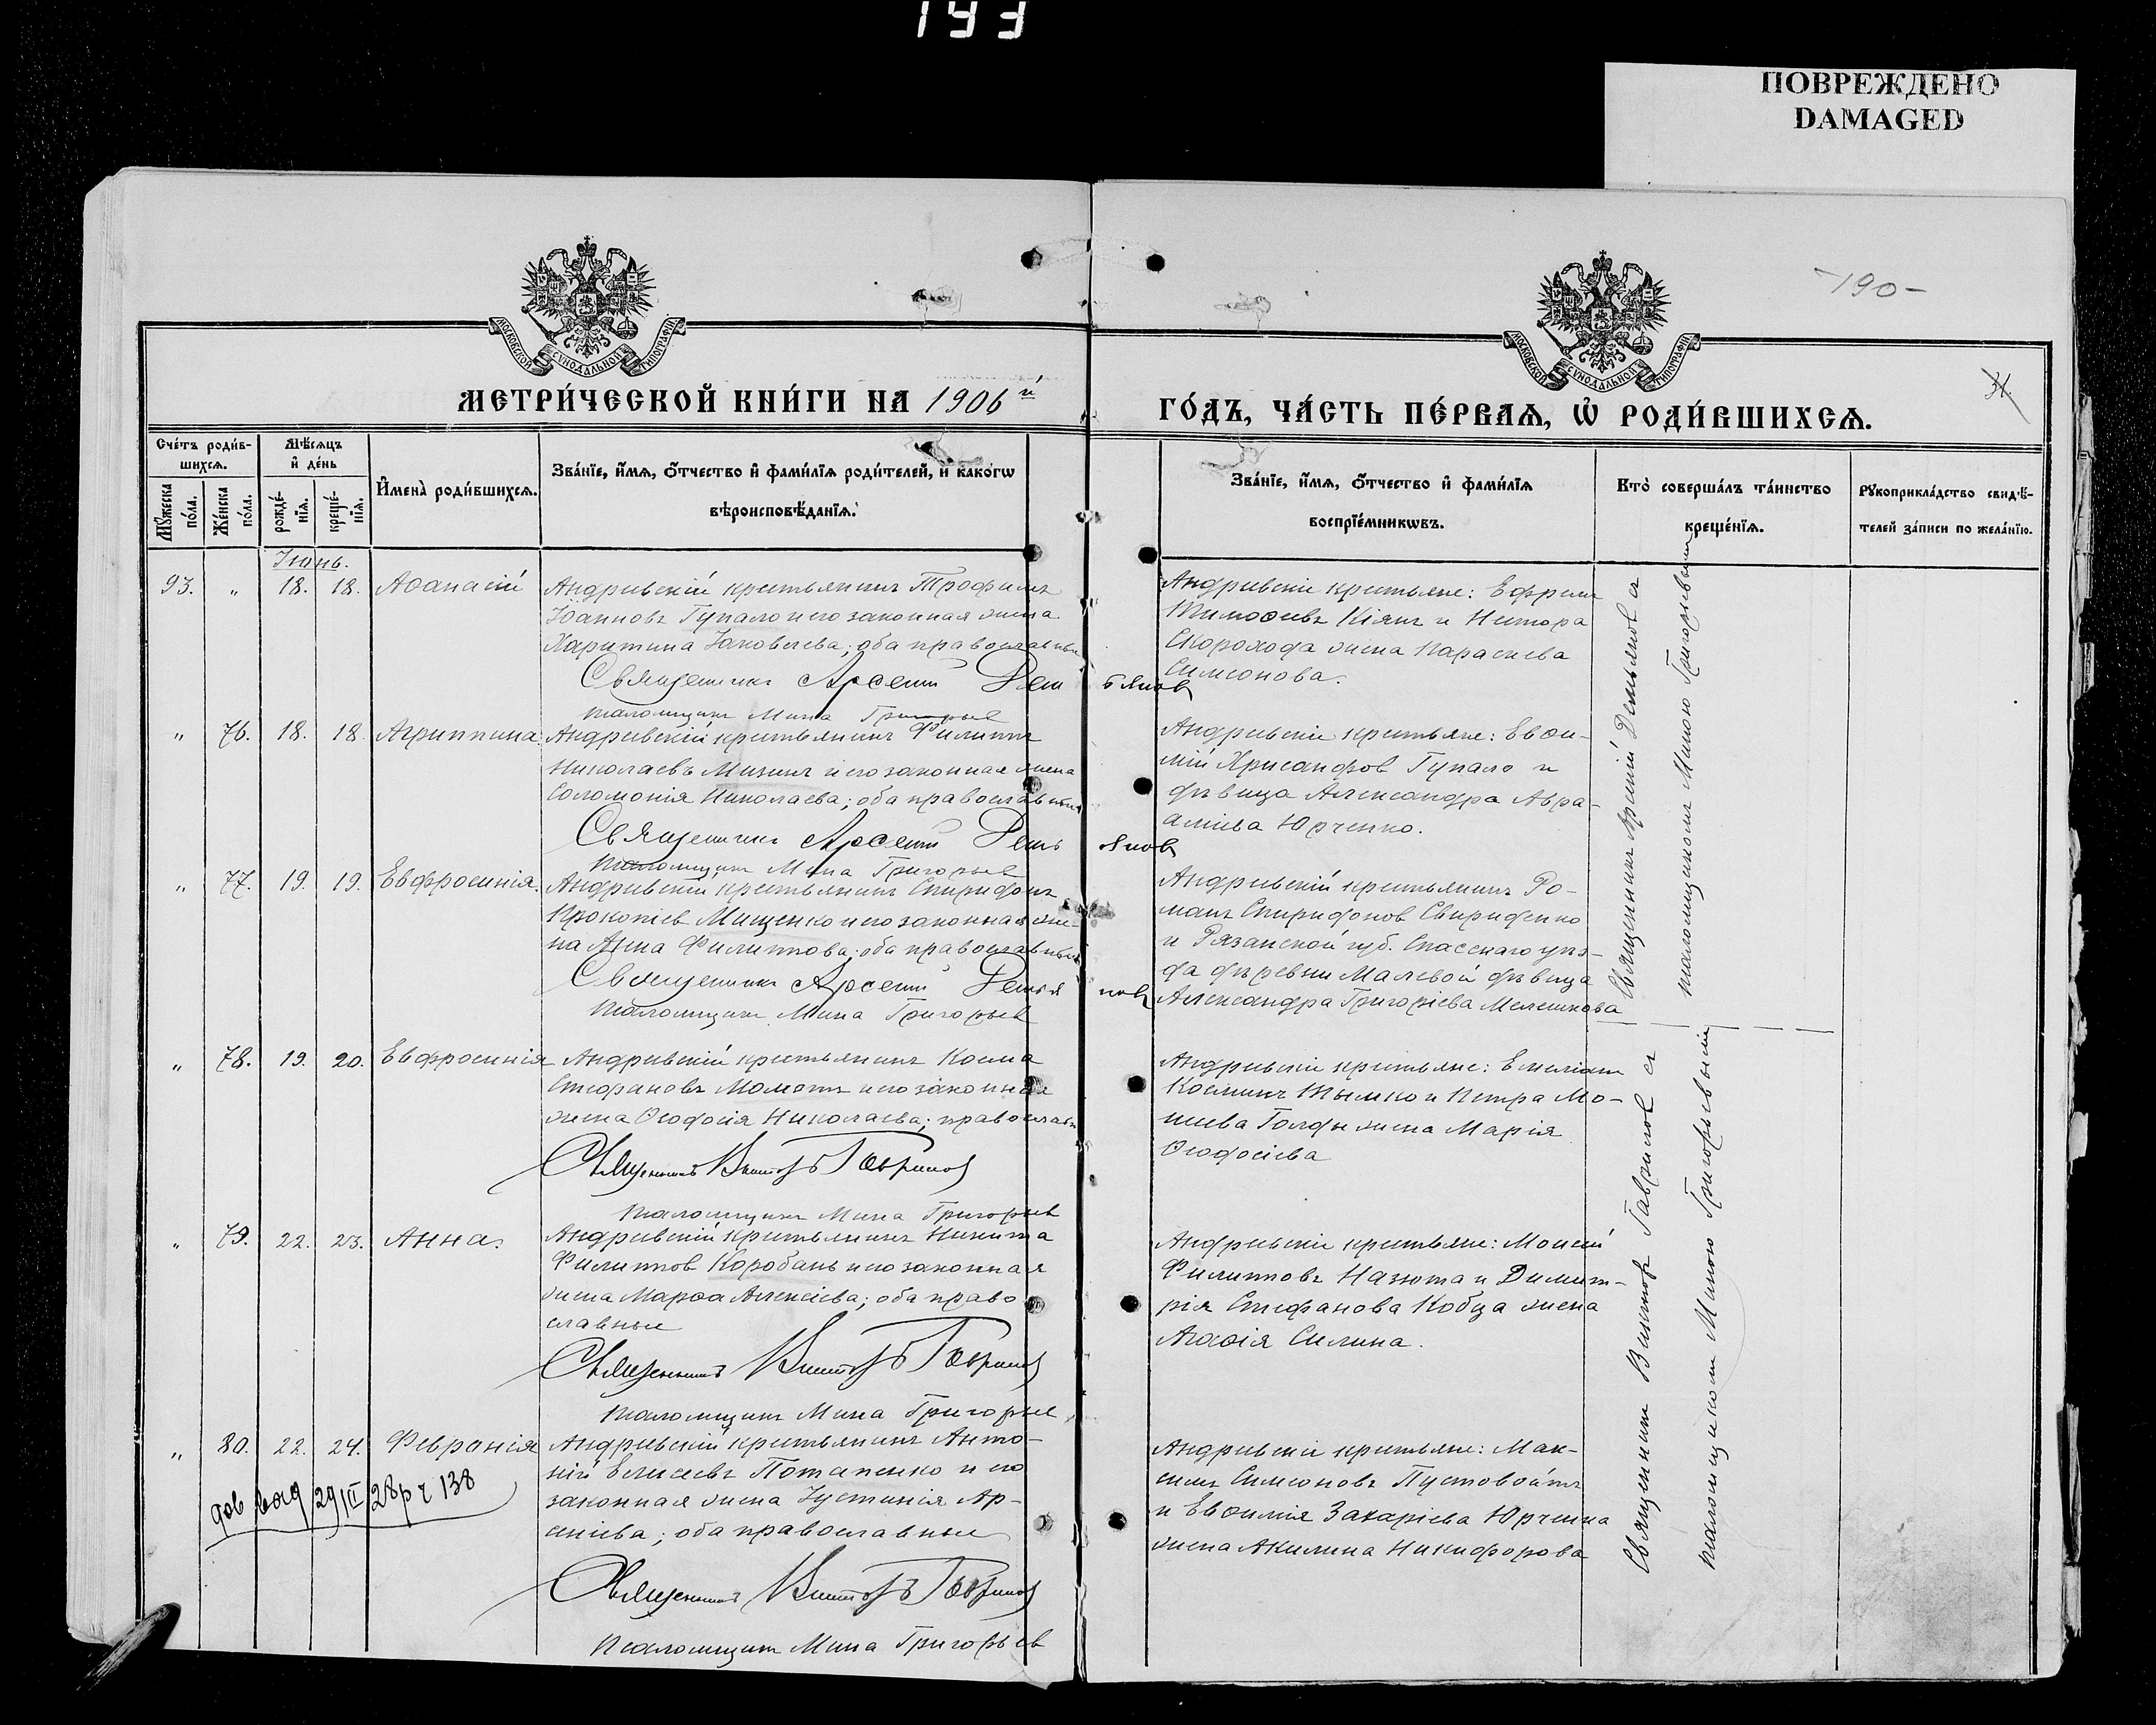 193
ПОВРЕЖДЕНО
DAMAGED
-190-
МОСКОВСКОЙ СѴНОДАЛЬНОЙ ТИПОГРАФІИ
МОСКОВСКОЙ СѴНОДАЛЬНОЙ ТИПОГРАФІИ
МЕТРИ́ЧЕСКОЙ КНИ́ГИ НА 1906й
ГО́ДЪ, ЧА́СТЬ ПЕ́РВАѦ, Ѡ҆ РОДИ́ВШИХСѦ.
31.
Сче́тъ роди́в-
шихсѧ.
Мꙋ́жеска по́ла.
Же́нска по́ла.
Мѣ́сѧцъ
и҆ де́нь
рожде́-
нїѧ.
креще́-
нїѧ.
И҆мена̀ роди́вшихсѧ.
Зва́нїе, и҆́мѧ, ѻ҆́тчество и҆ фами́лїѧ роди́телей, и҆ како́гѡ
вѣроисповѣ́данїѧ.
Зва́нїе, и҆́мѧ, ѻ҆́тчество и҆ фами́лїѧ
воспрїе́мникѡвъ.
Кто̀ соверша́лъ та́инство
креще́нїѧ.
Рꙋкоприкла́дство свидѣ́-
телей за́писи по жела́нїю.
Іюнь.
93. " 18. 18. Аѳанасій
Андреевскій крестьянинъ Трофимъ
Іоанновъ Гупало и его законная жена
Харитина Іаковлева; оба православные
Священникъ Арсеній Демьянов
Псаломщикъ Мина Григорьев
Андреевскіе крестьяне: Ефремъ
Тимоѳеевъ Кіянъ и Нестора
Скорохода жена Параскева
Симеонова.
" 76. 18. 18. Агриппина.
Андреевскій крестьянинъ Филиппъ
Николаевъ Мизинъ и его законная жена
Соломонія Николаева; оба православные
Священникъ Арсеній Демьянов
Псаломщикъ Мина Григорьев
Андреевскіе крестьяне: Евѳи-
мій Хрисанфов Гупало и
дѣвица Александра Авра-
аміева Юрченко.
" 77. 19. 19. Евфросинія.
Андреевскій крестьянинъ Спиридонъ
Прокопіев Мищенко и его законная же-
на Анна Филиппова; оба православные
Священникъ Арсеній Демьянов
Псаломщикъ Мина Григорьев
Андреевскій крестьянинъ Ро-
манъ Спиридонов Свириденко
и Рязанской губ. Спасскаго уѣз-
да деревни Малевой дѣвица
Александра Григоріева Мелешкова
Священникъ Арсеній Демьянов съ
псаломщикомъ Миною Григорьевымъ
" 78. 19. 20. Евфросинія
Андреевскій крестьянинъ Косма
Стефановъ Момотъ и его законная
жена Ѳеодосія Николаева; православн
Священникъ Викторъ Гаврилов
Псаломщикъ Мина Григорьев
Андреевскіе крестьяне: Емеліанъ
Косминъ Тымко и Петра Мо-
исева Голды жена Марія
Ѳеодосіева
" 79. 22. 23. Анна.
Андреевскій крестьянинъ Никита
Филиппов Коробань и его законная
жена Марѳа Алексіева; оба право-
славные
Священникъ Викторъ Гаврилов
Псаломщикъ Мина Григорьев
Андреевскіе крестьяне: Моисей
Филипповъ Назюта и Димит-
рія Стефанова Кобца жена
Агаѳія Силина.
" 80. 22. 24. Февронія
Андреевскій крестьянинъ Анто-
ній Елисеевъ Потапенко и его
законная жена Іустинія Ар-
сеніева; оба православные
Священникъ Викторъ Гаврилов
Псаломщикъ Мина Григорьев
Андреевскіе крестьяне: Мак-
симъ Симеоновъ Пустовойтъ
и Евѳимія Захаріева Юрченка
жена Акилина Никифорова
Священникъ Викторъ Гаврилов съ
псаломщикомъ Миною Григорьевымъ
дов вид 29/III 28р ч 138